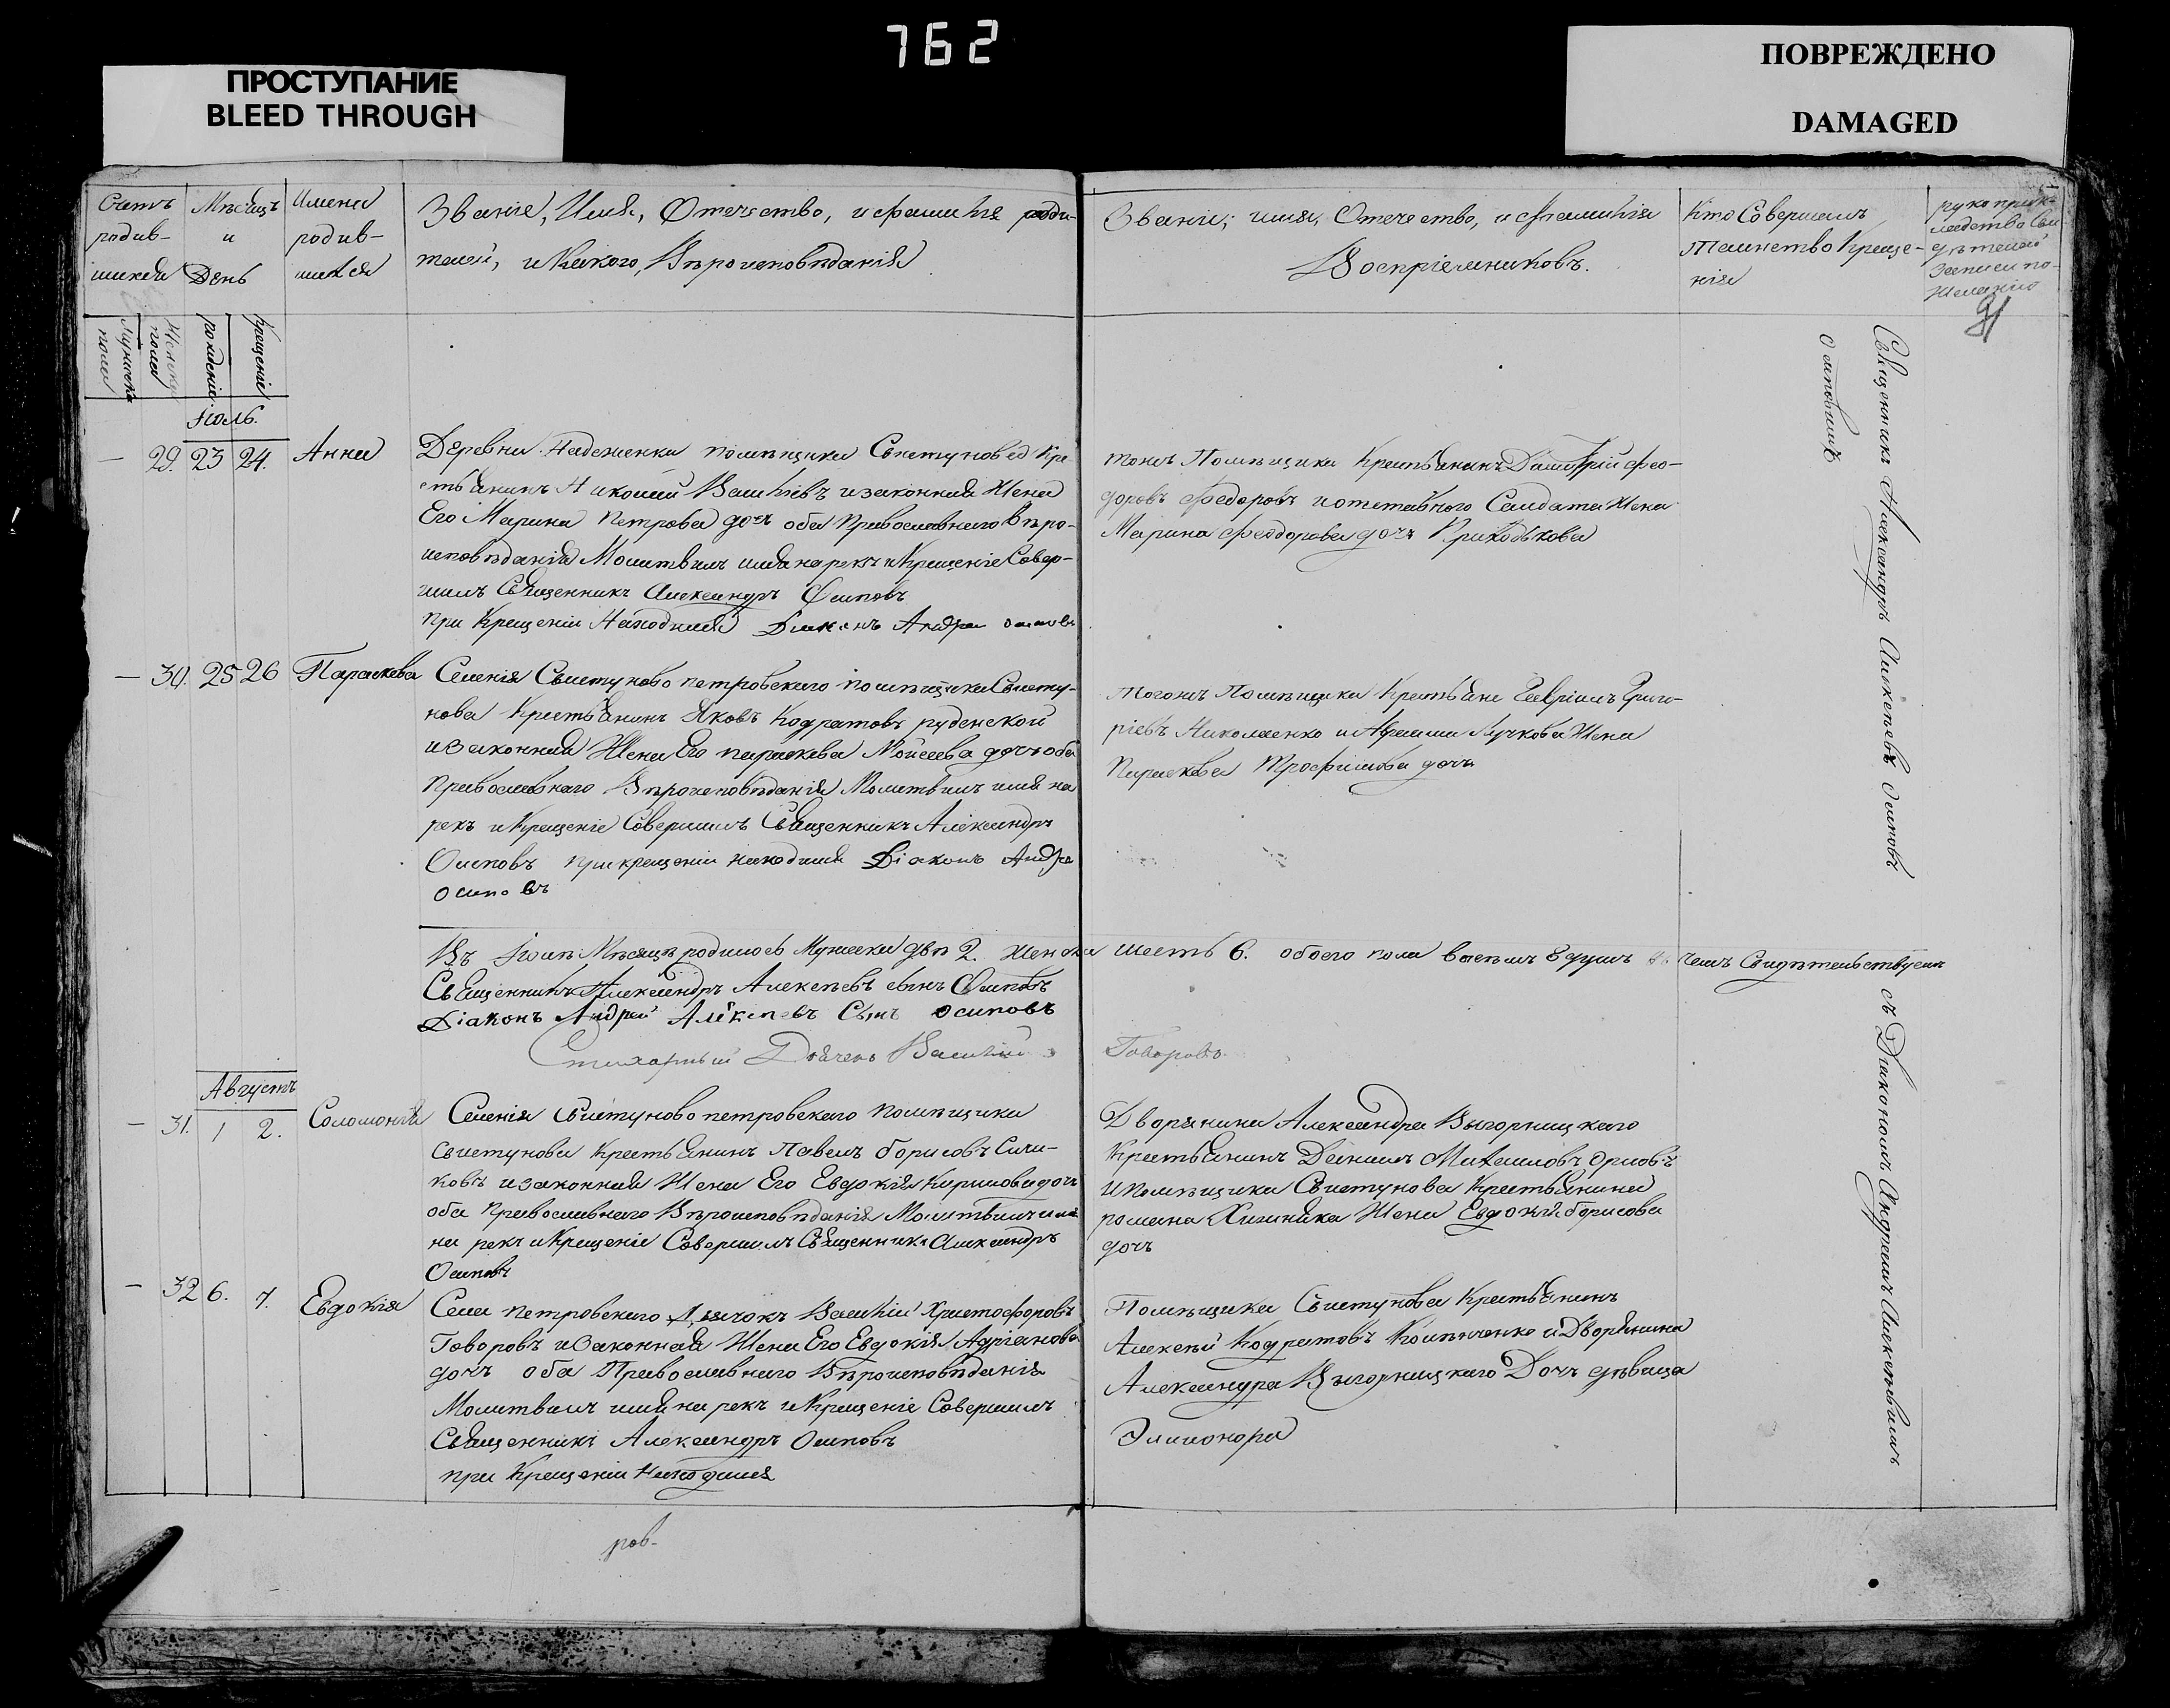 762
ПРОСТУПАНИЕ
BLEED THROUGH
ПОВРЕЖДЕНО
DAMAGED
Счетъ родив-шихся
Мѣсяцъ и День
Имена родив-шихся
Званіе, Имя, Отечество, и фамиліе роди-
телей, и Какого Вѣроисповѣданія
Званіи, имя, Отечество, и фамилія
Воспріемниковъ.
Кто Совершалъ
Таинство Креще-
нія
рукоприк-
ладство Сви-
дѣтелей
записи по
желанію
91
Мужеска пола
Женска пола
рожденіе
Крещеніе
Іюль.
— 29. 23 24. Анна
Деревни Надеженки помѣщика Свистуновед Кре
стьянинъ Николай Васильевъ изаконная Жена
Его Марина Петрова дочъ оба Православнаго Вѣро-
исповѣданія Молитвилъ имя нарекъ и Крещеніе Совер-
шилъ Священникъ Александръ Осиповъ
при Крещеніи Находился Дияконъ Андрей осиповъ
тогожъ Помѣщика Крестьянинъ Димитрій Фео-
доровъ Федоровъ и отставного Салдата Жена
Марина Феодорова дочъ Приходькова
— 30. 25 26 Параскева
Селенія Свистуново петровскаго помѣщика Свисту-
нова Крестьянинъ Яковъ Кодратовъ руденской
изаконная Жена Его параскева Мойсеева дочъ оба
Православнаго Вѣроисповѣданія Молитвилъ имя на
рекъ и Крещеніе Совершилъ Священникъ Александръ
Осиповъ при крещеніи находился Діаконъ Андрей
осиповъ
тогожъ Помѣщика Крестьяне Гавріилъ Григо-
ріевъ Николаенко и Абрама Лучкова Жена
Параскева Трофимова дочъ
Въ Іюлѣ Мѣсяцѣ родилось Мужеска двѣ 2. Женска шесть 6. обоего пола восемъ 8 душъ въ чемъ Свидѣтельствуемъ
Священникъ Александръ Алексѣевъ сынъ Осиповъ
Діаконъ Андрей Алексѣевъ Сынъ осиповъ
Стихарный Дьячекъ Василій Говоровъ
Августъ
— 31. 1 2. Соломонія
Селенія Свистуново петровскаго помѣщика
Свистунова Крестьянинъ Павелъ борисовъ Сичи-
ковъ изаконная Жена Его Евдокія Кирилова дочъ
оба Православнаго Вѣроисповѣданія Молитвилъ имя
на рекъ и Крещеніе Совершилъ Священникъ Александръ
Осиповъ
Дворянина Александра Выгорницкаго
Крестьянинъ Даниилъ Михаиловъ орловъ
и помѣщика Свистунова Крестьянина
романа Хижника Жена Евдокія борисова
дочъ
— 32 6. 7. Евдокія
Села петровскаго Дьячокъ Василій Христофоровъ
Говоровъ изаконная Жена Его Евдокія Адріанова
дочъ оба Православнаго Вѣроисповѣданія
Молитвилъ имя на рекъ и Крещеніе Совершилъ
Священникъ Александръ Осиповъ
при Крещеніи Находился
Помѣщика Свистунова Крестьянинъ
Алексѣй Кодратовъ и Дворянина
Александра Выгорницкаго Дочъ дѣвица
Элионора
Священникъ Александръ Алексѣевъ Осиповъ съ Діакономъ Андреемъ Алексѣевымъ
Осиповымъ
ров-